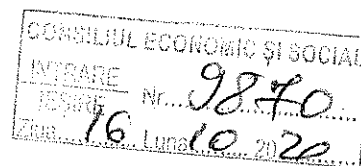 CONSILIUL ECONOMIC ȘI SOCIAL
INTRARE
IEȘIRE Nr. 9870
Ziua 16 Luna 10 2020